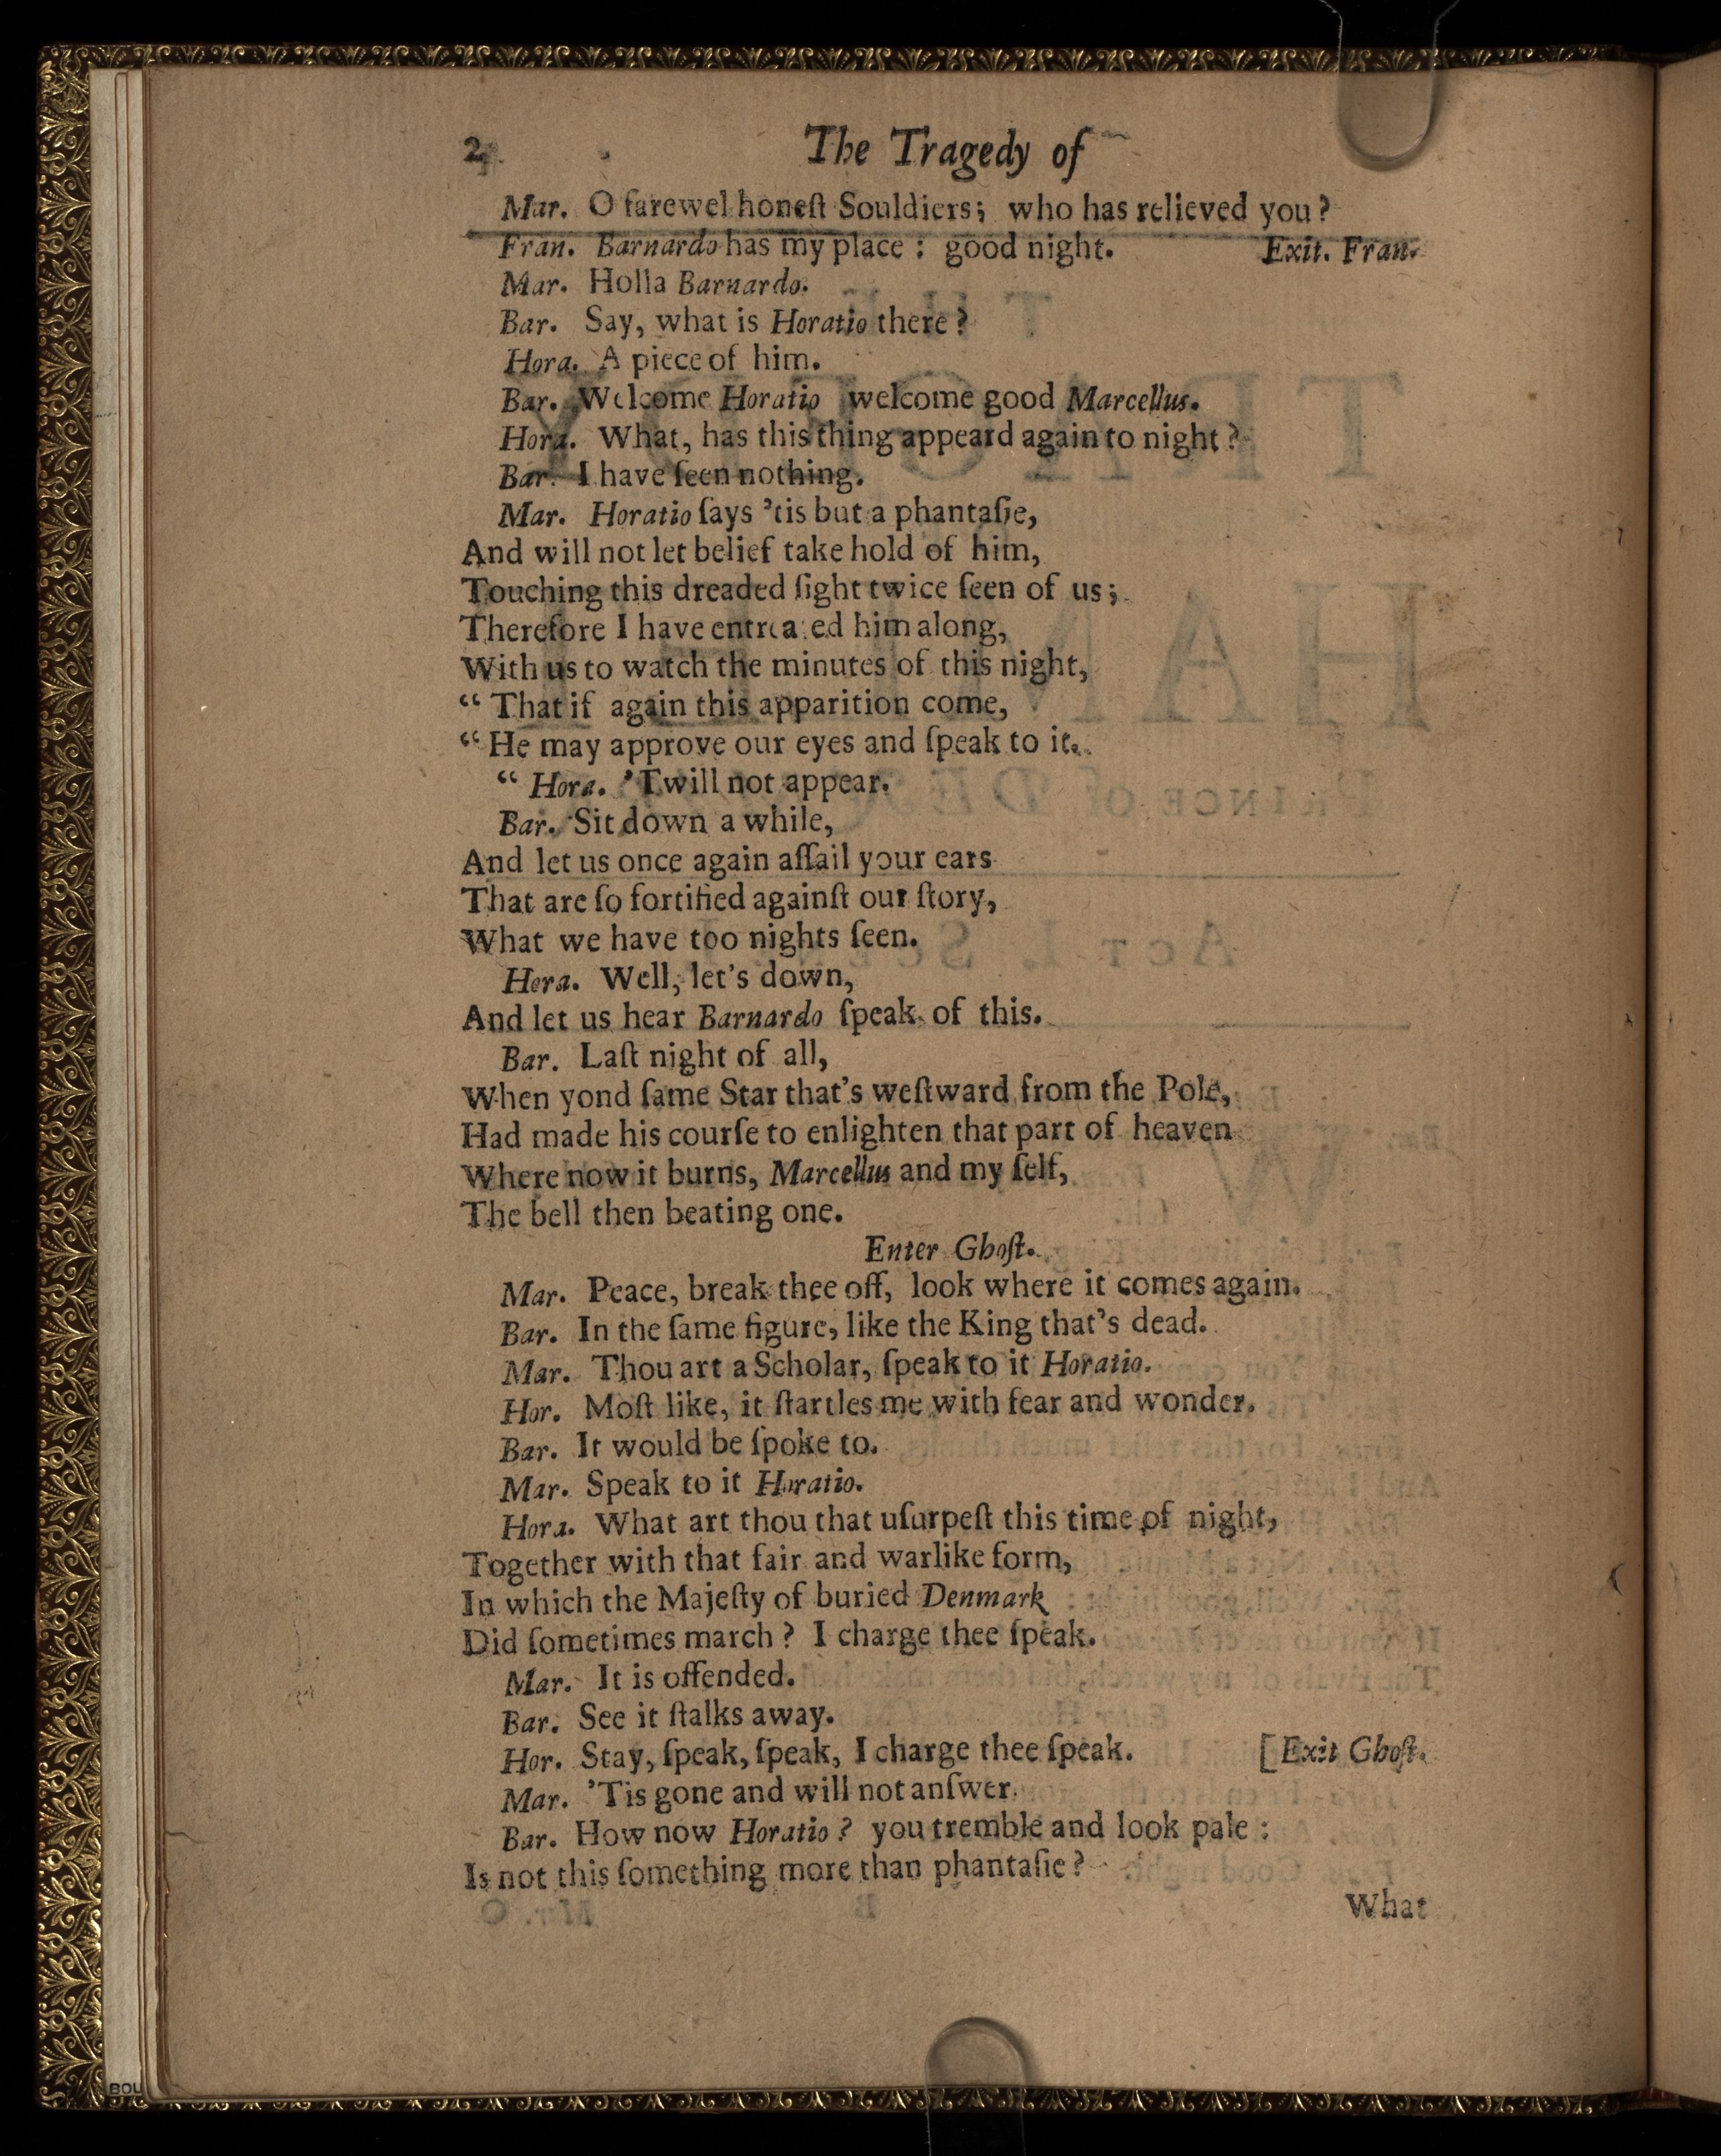 2 The Tragedy of
Mar. O farewel honeſt Souldiers; who has relieved you?
Fran. Barnardo has my place: good night. Exit. Fran.
Mar. Holla Barnardo.
Bar. Say, what is Horatio there?
Hora. A piece of him.
Bar. Welcome Horatio welcome good Marcellus.
Hora. What, has this thing appeard again to night?
Bar. I have ſeen nothing.
Mar. Horatio ſays 'tis but a phantaſie,
And will not let belief take hold of him,
Touching this dreaded ſight twice ſeen of us;
Therefore I have entrea ed him along,
With us to watch the minutes of this night,
“ That if again this apparition come,
“ He may approve our eyes and ſpeak to it.
“ Hora. 'Twill not appear.
Bar. Sit down a while,
And let us once again aſſail your ears
That are ſo fortified againſt our ſtory,
What we have too nights ſeen.
Hora. Well, let's down,
And let us hear Barnardo ſpeak of this.
Bar. Laſt night of all,
When yond ſame Star that's weſtward from the Pole,
Had made his courſe to enlighten that part of heaven
Where now it burns, Marcellus and my ſelf,
The bell then beating one.
Enter Ghoſt.
Mar. Peace, break thee off, look where it comes again.
Bar. In the ſame figure, like the King that's dead.
Mar. Thou art a Scholar, ſpeak to it Horatio.
Hor. Moſt like, it ſtartles me with fear and wonder.
Bar. It would be ſpoke to.
Mar. Speak to it Horatio.
Hora. What art thou that uſurpeſt this time of night,
Together with that fair and warlike form,
In which the Majeſty of buried Denmark
Did ſometimes march? I charge thee ſpeak.
Mar. It is offended.
Bar. See it ſtalks away.
Hor. Stay, ſpeak, ſpeak, I charge thee ſpeak. [Exit Ghoſt.
Mar. 'Tis gone and will not anſwer.
Bar. How now Horatio? you tremble and look pale:
Is not this ſomething more than phantaſie?
What
BOU